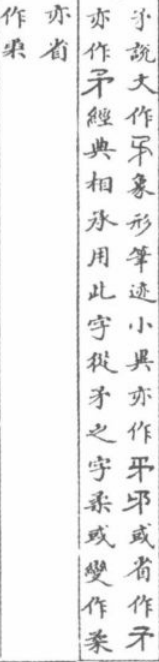 矛說文作𢦧象形筆迹小異亦作𢦧𢦧或省作矛
亦作矛經典相承用此字從矛之字柔或變作柔
亦省
作枽